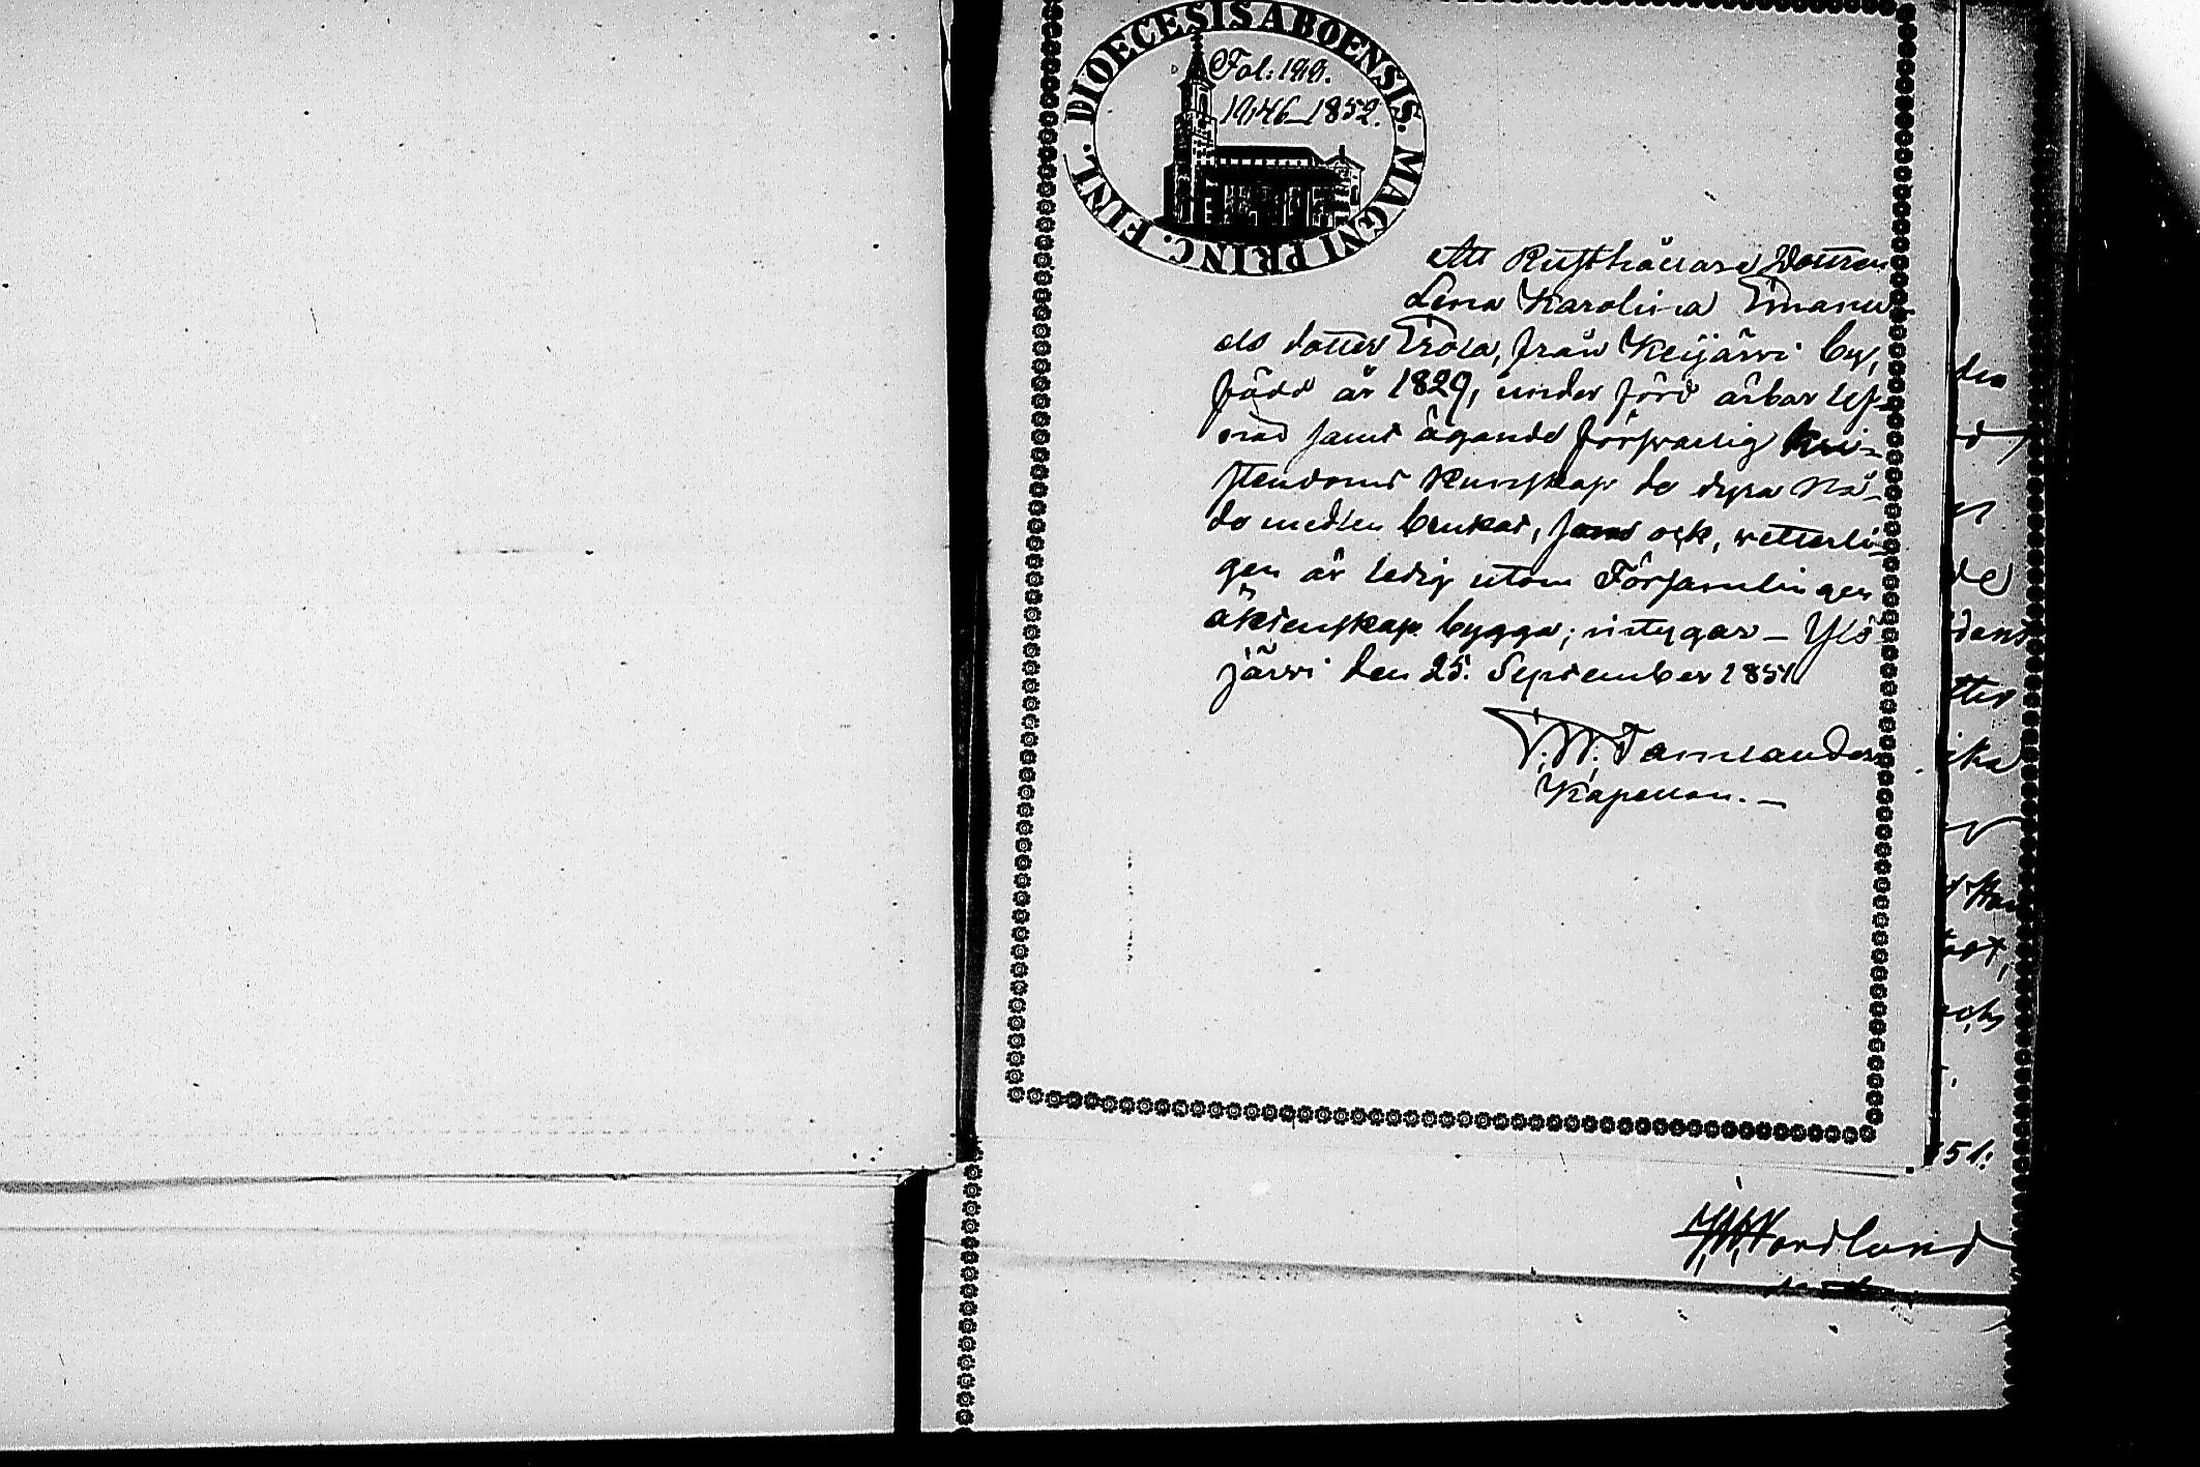 DIOECESIS ABOENSIS. MAGNI PRINC. FINL.
Fol: 190.
1846_1852.
Att Rusthållare Dottren
Lena Karolina Emanu
els dotter Erola, från Keijärvi by,
född år 1829, under förd ärbar lef-
nad samt ägande försvarlig kri-
stendoms kunskap de dyra Nå-
de medlen brukat, samt ock, vetterli-
gen är ledig utom Församlingen
äktenskap bygga; intygar _ Ylö
järvi den 25. September 1851
Kapellan. _
den
de
dens
tter
ika
och
51:
Nordlund